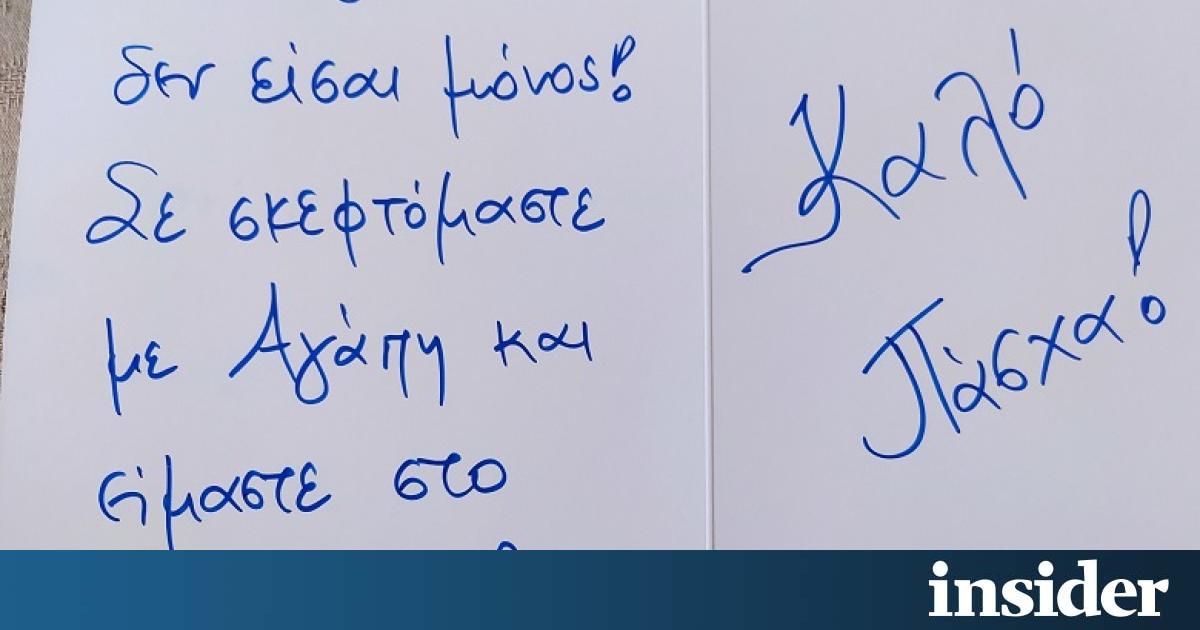 δεν είσαι μόνος!
Σε σκεφτόμαστε
με Αγάπη και
είμαστε στο
Καλό
Πάσχα!
insider